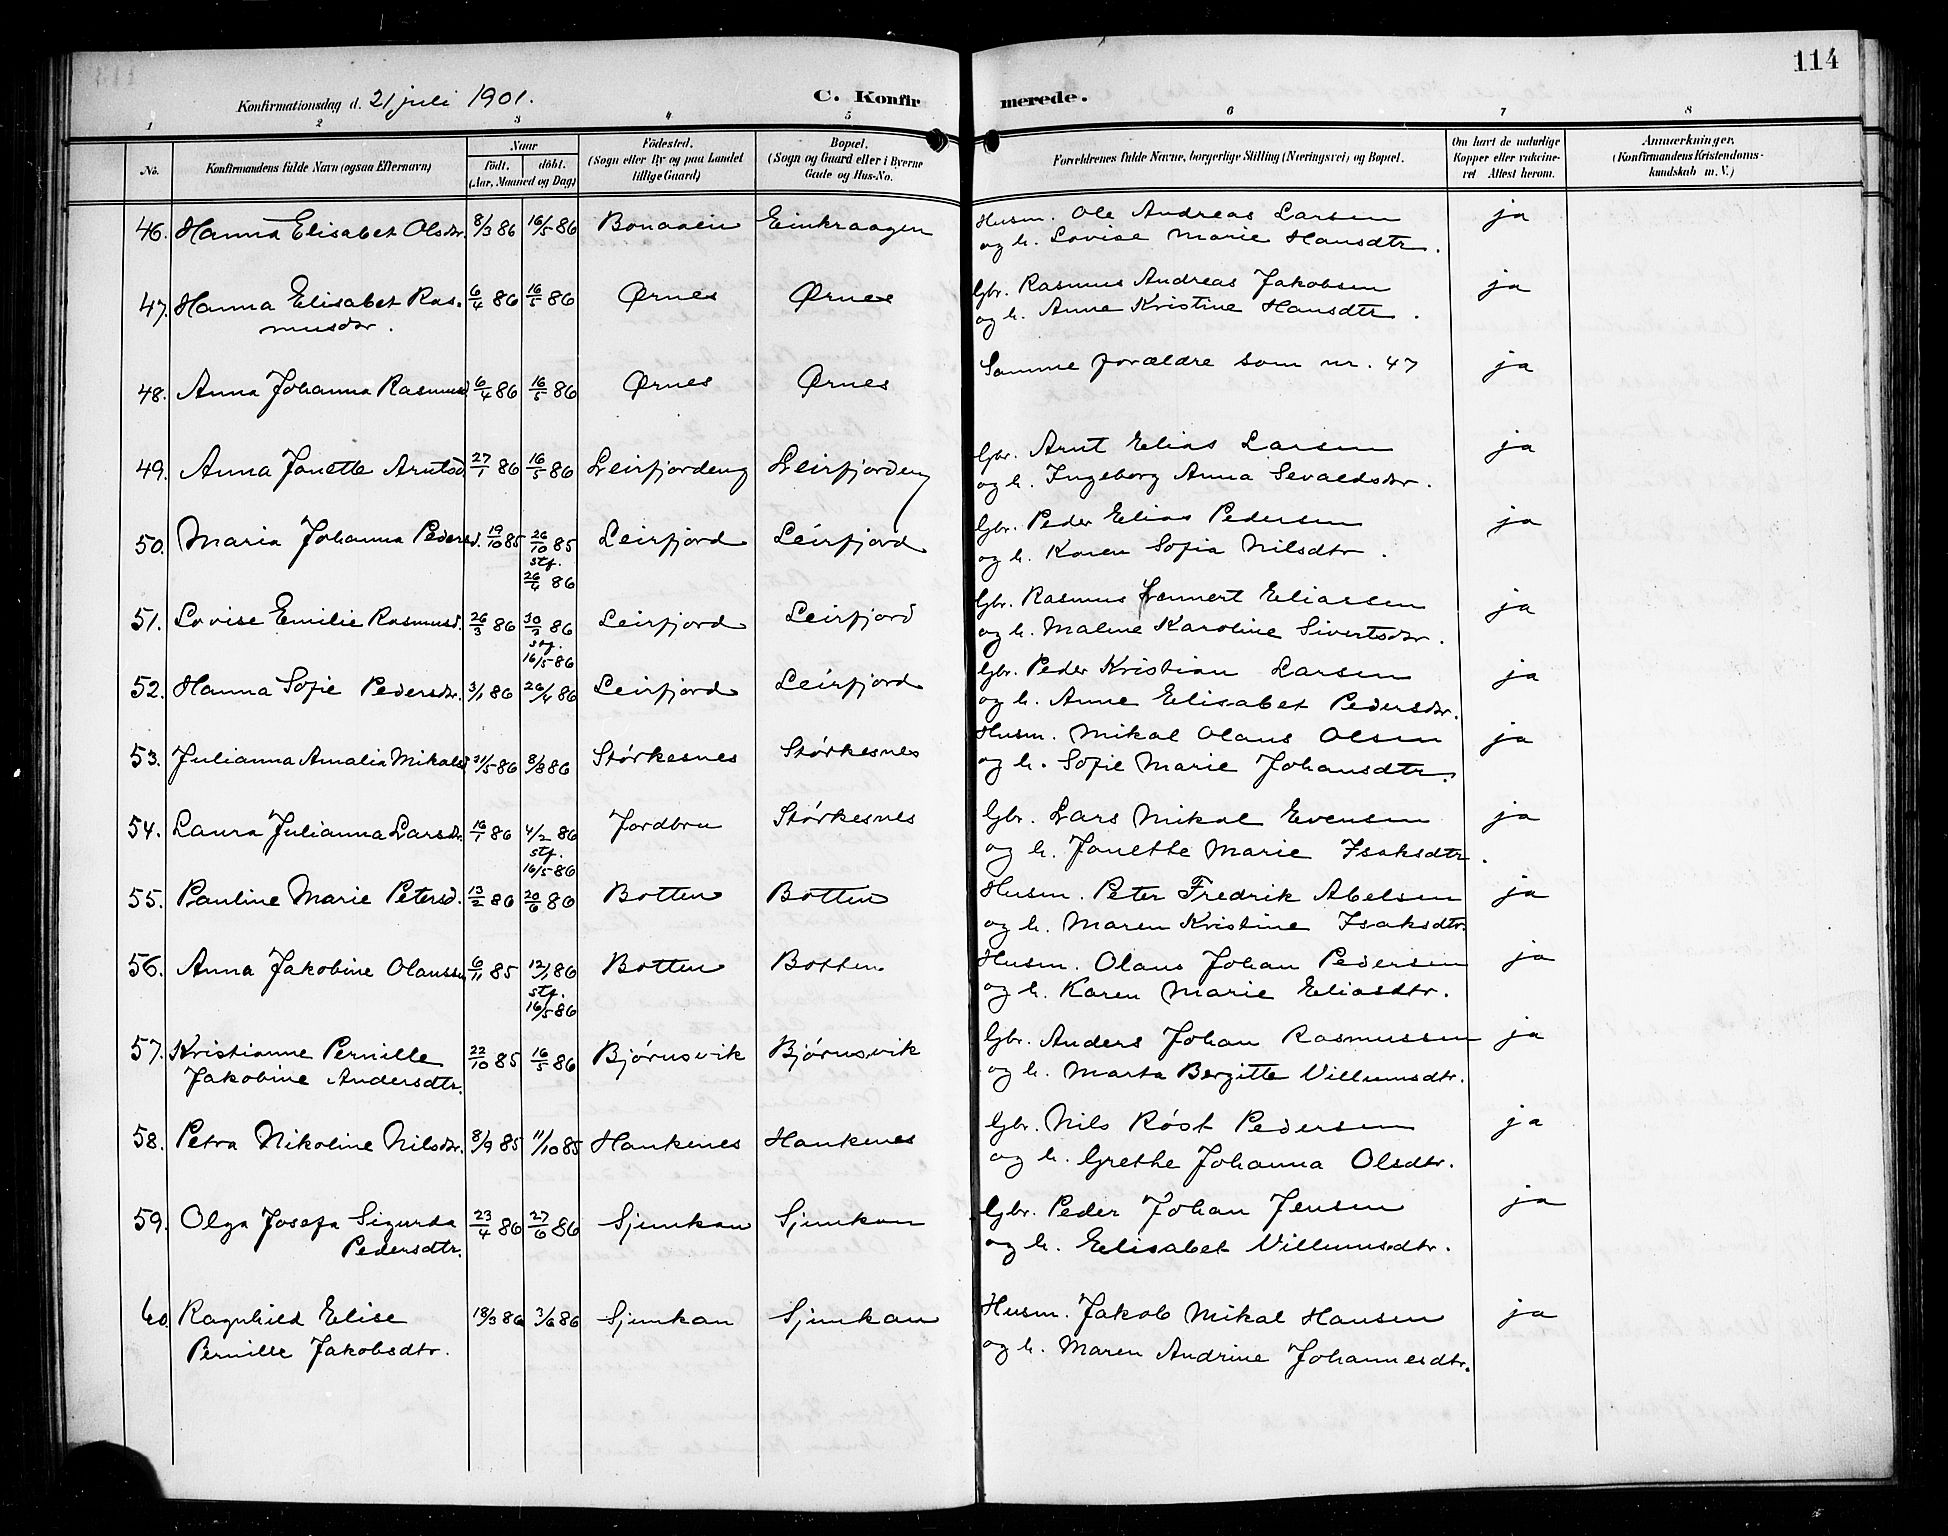 114
Konfirmationsdag d. 21 juli 1901.
C. Konfirmerede.
1 2 3 4 5 6 7 8
No. Konfirmandens fulde Navn (ogsaa Efternavn) Naar født. døbt. (Aar, Maaned og Dag) Fødested. (Sogn eller By og paa Landet tillige Gaard) Bopæl. (Sogn og Gaard eller i Byerne Gade og Hus-No. Forældrenes fulde Navne, borgerlige Stilling (Næringsvei) og Bopæl. Om havt de naturlige Kopper eller vaccineret Attest herom. Anmerkninger. (Konfirmandens Kristendomskundskab m. V.)
46. Hanna Elisabet Olsdr. 8/3 86 16/5 86 Bonaaen Einkraagen Husm. Ole Andreas Larsen ja
og h. Lovise Marie Hansdtr.
47. Hanna Elisabet Ras. 6/4 86 16/5 86 Ørnes Ørnes Gbr. Rasmus Andreas Jakobsen ja
musdr. og h. Anne Kristine Hansdtr.
48. Anna Johanna Rasmusd. 6/4 86 16/5 86 Ørnes Ørnes Samme forældre som nr. 47 ja
49. Anna Janette Arntsd. 27/1 86 16/5 86 Leirfjordeng Leirfjordeng Gbr. Arnt Elias Larsen ja
og h. Ingeborg Anna Sevaldsdr.
50. Maria Johanna Pedersd. 19/10 85 26/10 85 Leirfjord Leirfjord Gbr. Peder Elias Pedersen ja
stf. og h. Karen Sofia Nilsdtr.
26/4 86
51. Lovise Emilie Rasmusd. 26/3 86 30/3 86 Leirfjord Leirfjord Gbr. Rasmus Lennert Eliassen ja
stf. og h. Maline Karoline Sivertsdr.
16/5 86
52. Hanna Sofie Pedersdr. 3/1 86 26/4 86 Leirfjord Leirfjord Gbr. Peder Kristian Larsen ja
og h. Anne Elisabet Pedersdr.
53. Julianna Amalia Mikalsd 31/5 86 8/8 86 Störkesnes Störkesnes Husm. Mikal Olaus Olsen ja
og h. Sofie Marie Johansdtr.
54. Laura Julianna Larsdr. 16/1 86 4/2 86 Jordbru Störkesnes Gbr. Lars Mikal Evensen ja
stf. og h. Janette Marie Isaksdtr.
16/5 86
55. Pauline Marie Petersd. 13/2 86 20/6 86 Botten Botten Husm. Peter Fredrik Abelsen ja
og h. Maren Kristine Isaksdtr.
56. Anna Jakobine Olausd. 6/11 85 12/1 86 Botten Botten Husm. Olaus Johan Pedersen ja
stf. og h. Karen Marie Eliasdtr.
16/5 86
57. Kristianne Pernille 22/10 85 16/5 86 Bjórnsvik Bjórnsvik Gbr. Anders Johan Rasmussen ja
Jakobine Andersdtr. og h. Marta Bergitte Villumsdtr.
58. Petra Nikoline Nilsdr. 8/9 85 11/10 85 Hankenes Hankenes Gbr. Nils Røst Pedersen ja
og h. Grethe Johanna Olsdtr.
59. Olga Josefa Sigurda 23/4 86 27/6 86 Sjunkan Sjunkan Gbr. Peder Johan Jensen ja
Pedersdtr. og h. Elisabet Villumsdtr.
60 Ragnhild Elise 18/3 86 3/6 86 Sjunkan Sjunkan Husm. Jakob Mikal Hansen ja
Pernille Jakobsdtr. og h. Maren Andrine Johannesdtr.